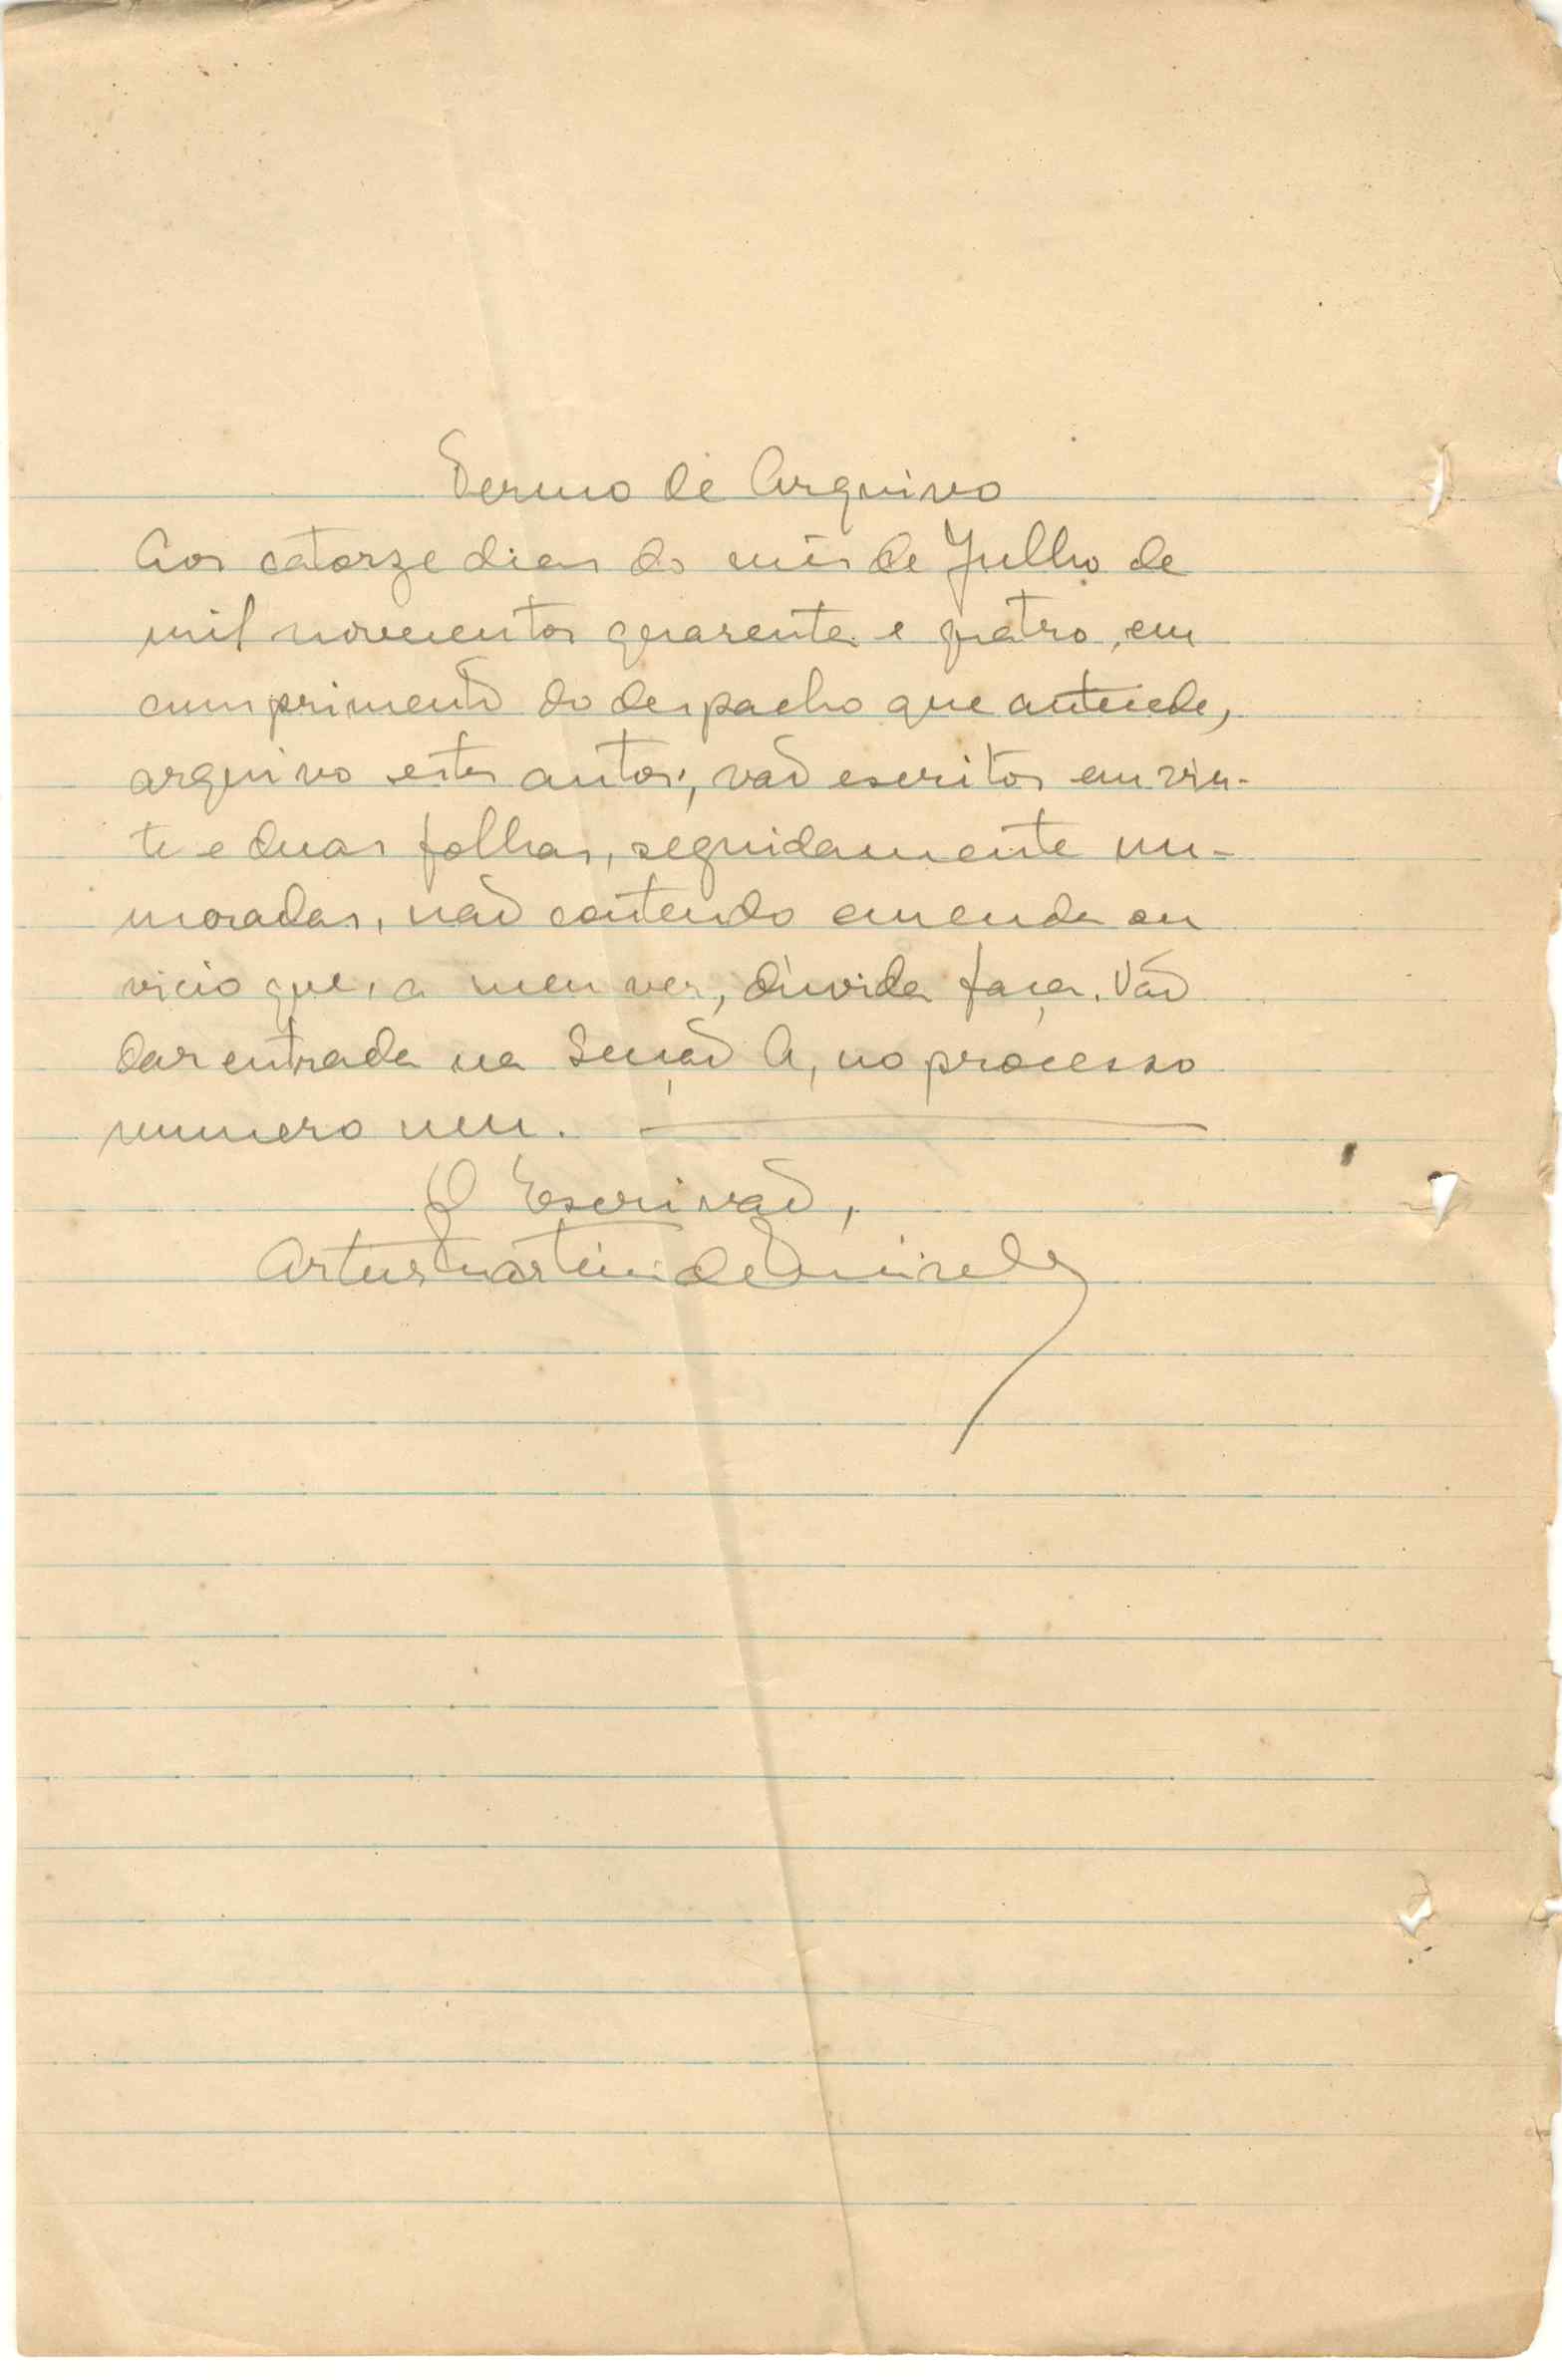 Termo de Arquivo
Aos catorze dias do mês de Julho de
mil novecentos quarenta e quatro, em
cumprimento do despacho que antecede,
arquivo estes autos, vão escritos em vin-
te e duas folhas, seguidamente nu-
moradas, não contendo emenda ou
vicio que, a meu ver, dúvida faça. Vão
dar entrada na Secção A, no processo
numero um.
O Escrivão,
Artur Martins de